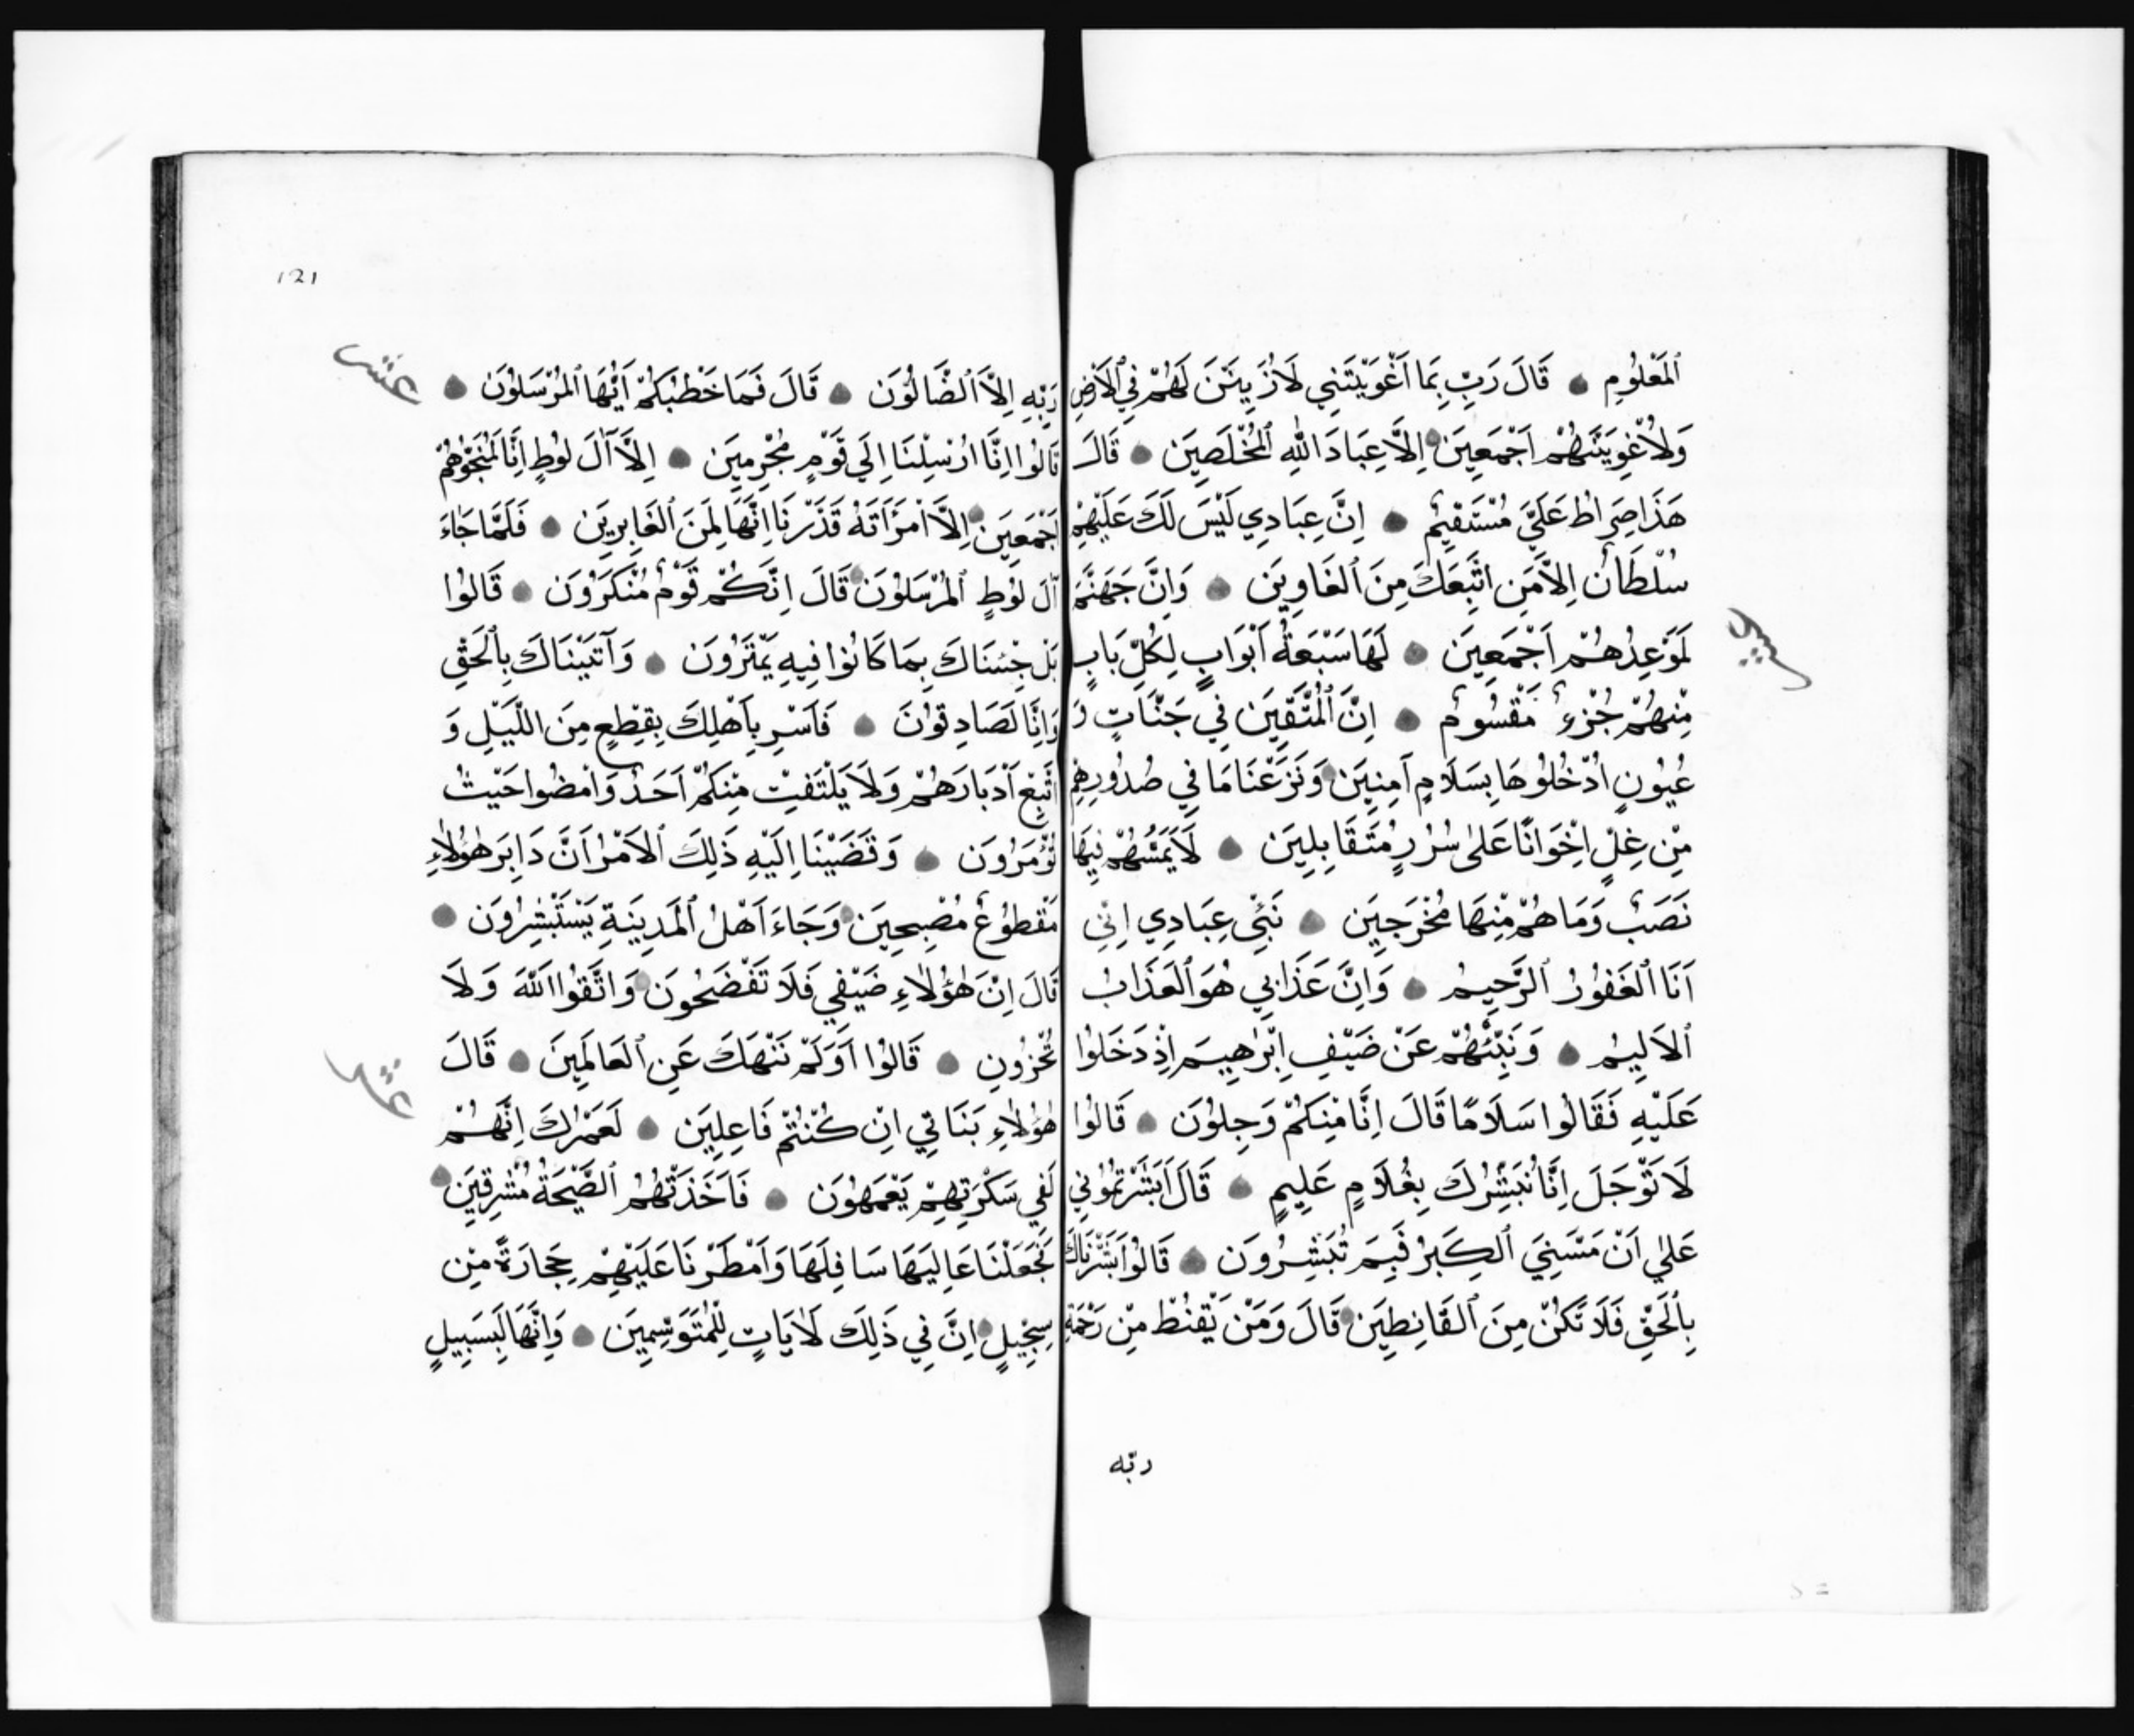 ٱلْمَعْلُومِ قَالَ رَبِّ بِمَا اَغْوَيْتَنِي لَاُزَيِّنَنَّ لَهُمْ فِي ٱلْاَرْضِ
وَلَاُغْوِيَنَّهُمْ اَجْمَعِينَ اِلَّا عِبَادَ اللّٰهِ ٱلْمُخْلَصِينَ قَالَ
هَذَا صِرَاطٌ عَلَيَّ مُسْتَقِيمٌ اِنَّ عِبَادِي لَيْسَ لَكَ عَلَيْهِمْ
سُلْطَانٌ اِلَّا مَنِ اتَّبَعَكَ مِنَ ٱلْغَاوِينَ وَاِنَّ جَهَنَّمَ
عشر
لَمَوْعِدُهُمْ اَجْمَعِينَ لَهَا سَبْعَةُ اَبْوَابٍ لِكُلِّ بَابٍ
مِنْهُمْ جُزْءٌ مَقْسُومٌ اِنَّ ٱلْمُتَّقِينَ فِي جَنَّاتٍ وَ
عُيُونٍ اُدْخُلُوهَا بِسَلَامٍ آمِنِينَ وَنَزَعْنَا مَا فِي صُدُورِهِمْ
مِنْ غِلٍّ اِخْوَانًا عَلٰى سُرُرٍ مُتَقَابِلِينَ لَا يَمَسُّهُمْ فِيهَا
نَصَبٌ وَمَا هُمْ مِنْهَا مُخْرَجِينَ نَبِّئْ عِبَادِي اِنِّي
اَنَا ٱلْغَفُورُ ٱلرَّحِيمُ وَاِنَّ عَذَابِي هُوَ ٱلْعَذَابُ
ٱلْاَلِيمُ وَنَبِّئْهُمْ عَنْ ضَيْفِ اِبْرٰهِيمَ اِذْ دَخَلُوا
عَلَيْهِ فَقَالُوا سَلَامًا قَالَ اِنَّا مِنْكُمْ وَجِلُونَ قَالُوا
لَا تَوْجَلْ اِنَّا نُبَشِّرُكَ بِغُلَامٍ عَلِيمٍ قَالَ اَبَشَّرْتُمُونِي
عَلٰى اَنْ مَسَّنِيَ ٱلْكِبَرُ فَبِمَ تُبَشِّرُونَ قَالُوا بَشَّرْنَاكَ
بِٱلْحَقِّ فَلَا تَكُنْ مِنَ ٱلْقَانِطِينَ قَالَ وَمَنْ يَقْنُطُ مِنْ رَحْمَةِ
ربّه
121
عشر
رَبِّهِ اِلَّا ٱلضَّالُّونَ قَالَ فَمَا خَطْبُكُمْ اَيُّهَا ٱلْمُرْسَلُونَ
قَالُوا اِنَّا اُرْسِلْنَا اِلَى قَوْمٍ مُجْرِمِينَ اِلَّا آلَ لُوطٍ اِنَّا لَمُنَجُّوهُمْ
اَجْمَعِينَ اِلَّا امْرَاَتَهُ قَدَّرْنَا اِنَّهَا لَمِنَ ٱلْغَابِرِينَ فَلَمَّا جَاءَ
آلَ لُوطٍ ٱلْمُرْسَلُونَ قَالَ اِنَّكُمْ قَوْمٌ مُنْكَرُونَ قَالُوا
بَلْ جِئْنَاكَ بِمَا كَانُوا فِيهِ يَمْتَرُونَ وَآتَيْنَاكَ بِٱلْحَقِّ
وَاِنَّا لَصَادِقُونَ فَاَسْرِ بِاَهْلِكَ بِقِطْعٍ مِنَ اللَّيْلِ وَ
اتَّبِعْ اَدْبَارَهُمْ وَلَا يَلْتَفِتْ مِنْكُمْ اَحَدٌ وَامْضُوا حَيْثُ
تُؤْمَرُونَ وَقَضَيْنَا اِلَيْهِ ذَلِكَ ٱلْاَمْرَ اَنَّ دَابِرَ هٰؤُلَاءِ
مَقْطُوعٌ مُصْبِحِينَ وَجَاءَ اَهْلُ ٱلْمَدِينَةِ يَسْتَبْشِرُونَ
قَالَ اِنَّ هٰؤُلَاءِ ضَيْفِي فَلَا تَفْضَحُونِ وَاتَّقُوا اللّٰهَ وَلَا
تُخْزُونِ قَالُوا اَوَلَمْ نَنْهَكَ عَنِ ٱلْعَالَمِينَ قَالَ
عشر
هٰؤُلَاءِ بَنَاتِي اِنْ كُنْتُمْ فَاعِلِينَ لَعَمْرُكَ اِنَّهُمْ
لَفِي سَكْرَتِهِمْ يَعْمَهُونَ فَاَخَذَتْهُمُ ٱلصَّيْحَةُ مُشْرِقِينَ
فَجَعَلْنَا عَالِيَهَا سَافِلَهَا وَاَمْطَرْنَا عَلَيْهِمْ حِجَارَةً مِنْ
سِجِّيلٍ اِنَّ فِي ذَلِكَ لَاٰيَاتٍ لِلْمُتَوَسِّمِينَ وَاِنَّهَا لَبِسَبِيلٍ